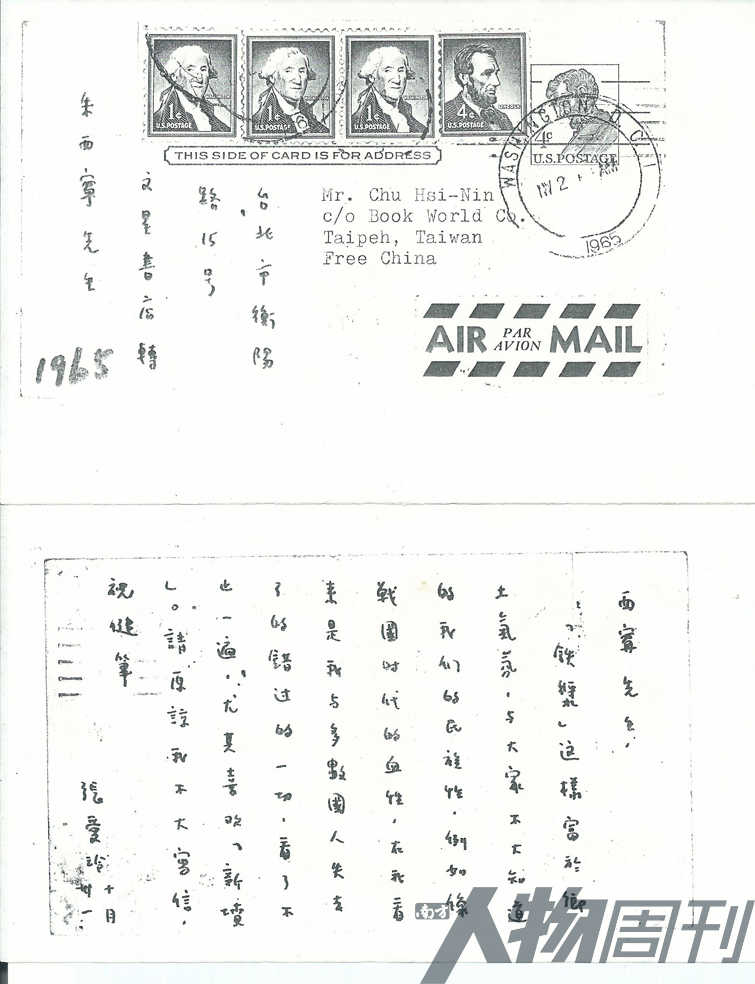 1¢
U.S.POSTAGE
1¢
U.S.POSTAGE
1¢
U.S.POSTAGE
4¢
LINCOLN
U.S.POSTAGE
4¢
U.S.POSTAGE
WASHINGTON, D.C.
1965
THIS SIDE OF CARD IS FOR ADDRESS
Mr. Chu Hsi-Nin
c/o Book World Co.
Taipeh, Taiwan
Free China
台北市衡陽
路15号
文星書店轉
朱西寧先生
1965
AIR PAR AVION MAIL
西寧先生,
「鐵漿」这樣富於鄉
土氣氛,与大家不大知道
的我们的民族性,例如像
戰國时代的血性,在我看
来是我与多數國人失去
了的錯过的一切,看了不
止一遍,尤其喜欢「新墳
」。請原諒我不大寫信,
祝健筆
張愛玲 十月卅一
南方人物周刊